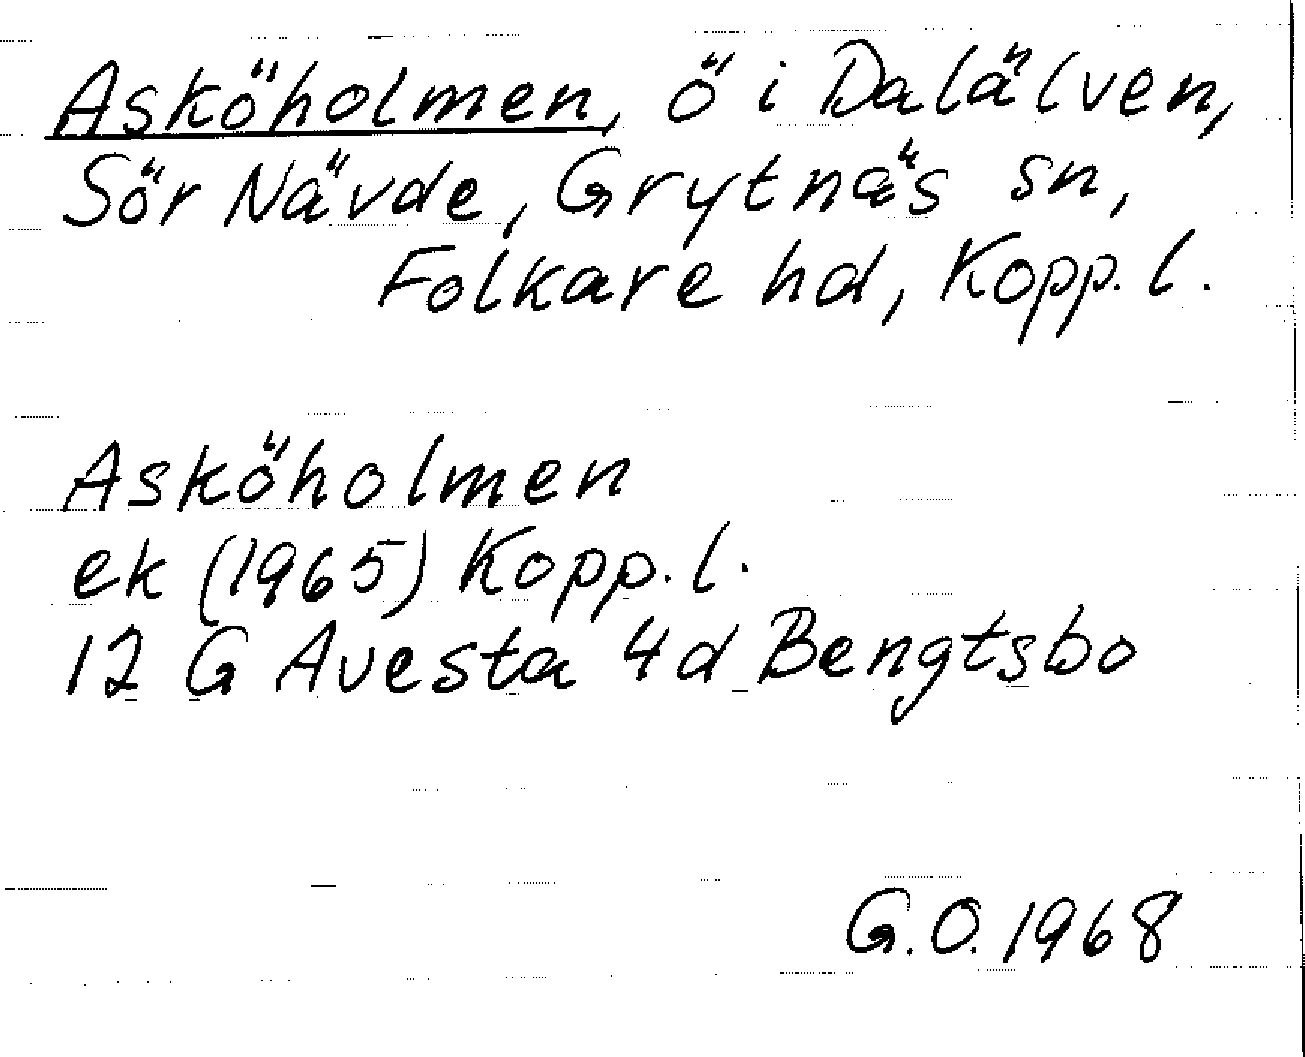 Asköholmen, ö i Dalälven,
Sör Nävde, Grytnäs sn,
Folkare hd, Kopp. l.
Asköholmen
ek (1965) Kopp. l.
12 G Avesta 4d Bengtsbo
G.O. 1968